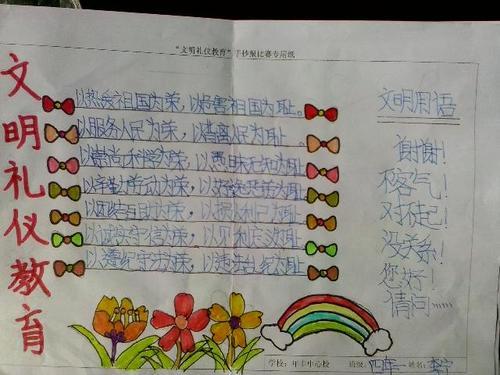 “文明礼仪教育”手抄报比赛专用纸
文明礼仪教育
以热爱祖国为荣，以危害祖国为耻。
以服务人民为荣，以背离人民为耻。
以崇尚科学为荣，以愚昧无知为耻
以辛勤劳动为荣，以好逸恶劳为耻
以团结互助为荣，以损人利己为耻
以诚实守信为荣，以见利忘义为耻
以遵纪守法为荣，以违法乱纪为耻
文明用语
谢谢！
不客气！
对不起！
没关系！
您好！
请问……
学校：年丰中心校 班级：四年一 姓名：